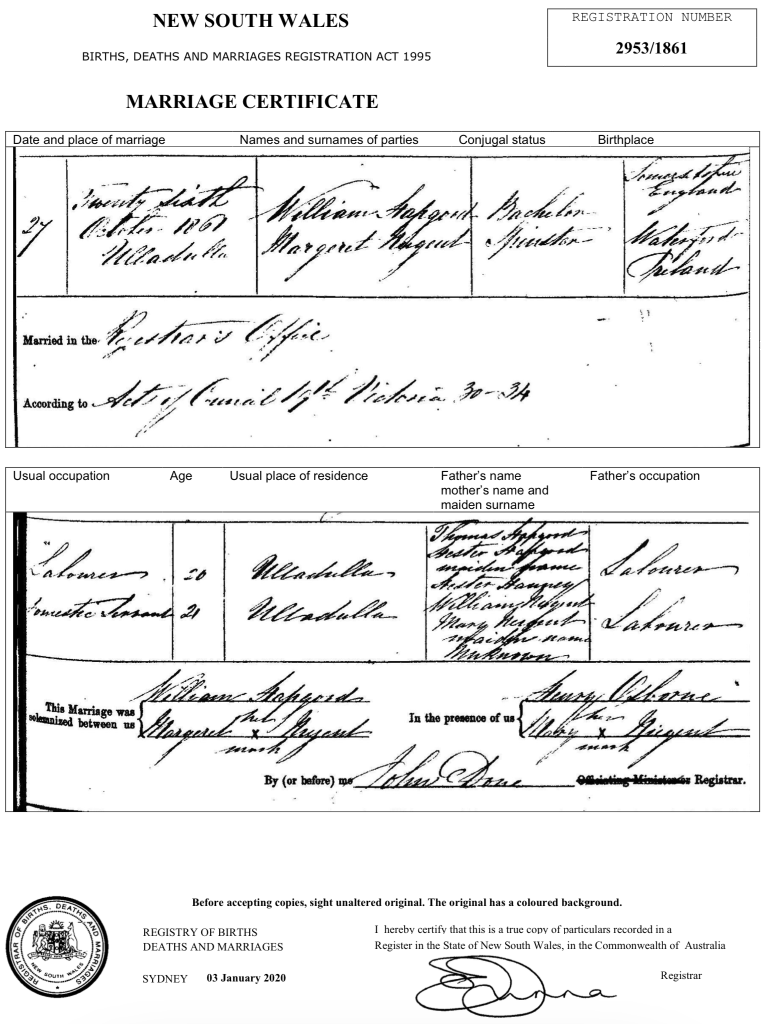 NEW SOUTH WALES
BIRTHS, DEATHS AND MARRIAGES REGISTRATION ACT 1995
REGISTRATION NUMBER
2953/1861
MARRIAGE CERTIFICATE
Date and place of marriage Names and surnames of parties Conjugal status Birthplace
27
Twenty sixth
October 1861
Ulladulla
William Hapgood
Margaret Nugent
Bachelor
Spinster
Somersetshire
England
Waterford
Ireland
Married in the Registrar's Office
According to Acts of Council 19th Victoria 30-34
Usual occupation Age Usual place of residence Father's name Father's occupation
mother's name and
maiden surname
Labourer 20 Ulladulla
Domestic Servant 21 Ulladulla
Thomas Hapgood
Hester Hapgood
maiden name
Hester
William Nugent
Mary Nugent
maiden name
Unknown
Labourer
Labourer
This Marriage was
solemnized between us
William Hapgood
Margaret her x Nugent
mark
In the presence of us
Henry Osborne
Mary her x Nugent
mark
By (or before) me John Done Officiating Minister or Registrar.
Before accepting copies, sight unaltered original. The original has a coloured background.
REGISTRAR OF BIRTHS, DEATHS AND MARRIAGES
NEW SOUTH WALES
REGISTRY OF BIRTHS
DEATHS AND MARRIAGES
SYDNEY 03 January 2020
I hereby certify that this is a true copy of particulars recorded in a
Register in the State of New South Wales, in the Commonwealth of Australia
Registrar